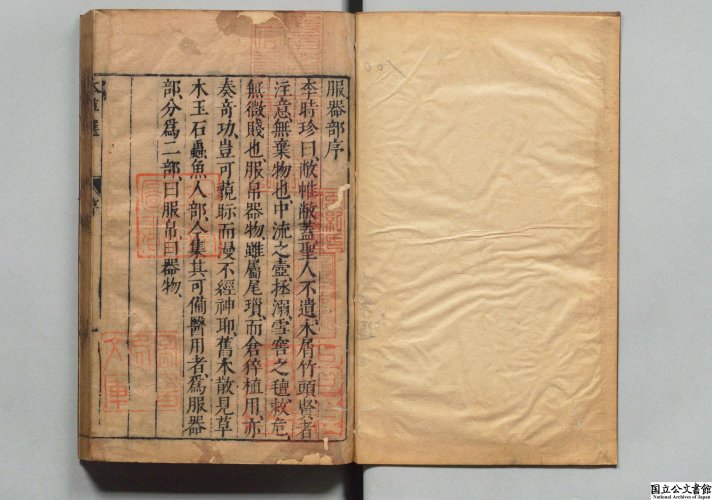 服器部序
李時珍曰、敝帷敝蓋聖人不遺、木屑竹頭、賢者
注意、無棄物也、中流之壺、拯溺、雪窖之氊、救危、
無微賤也、服帛器物、雖屬尾瑣、而倉猝値用、亦
奏奇功、豈可藐眎而漫不經神耶、舊本散見草
木玉石蟲魚人部、今集其可備醫用者、爲服器
部、分爲二部、曰服帛、曰器物、
序
国立公文書館
National Archives of Japan